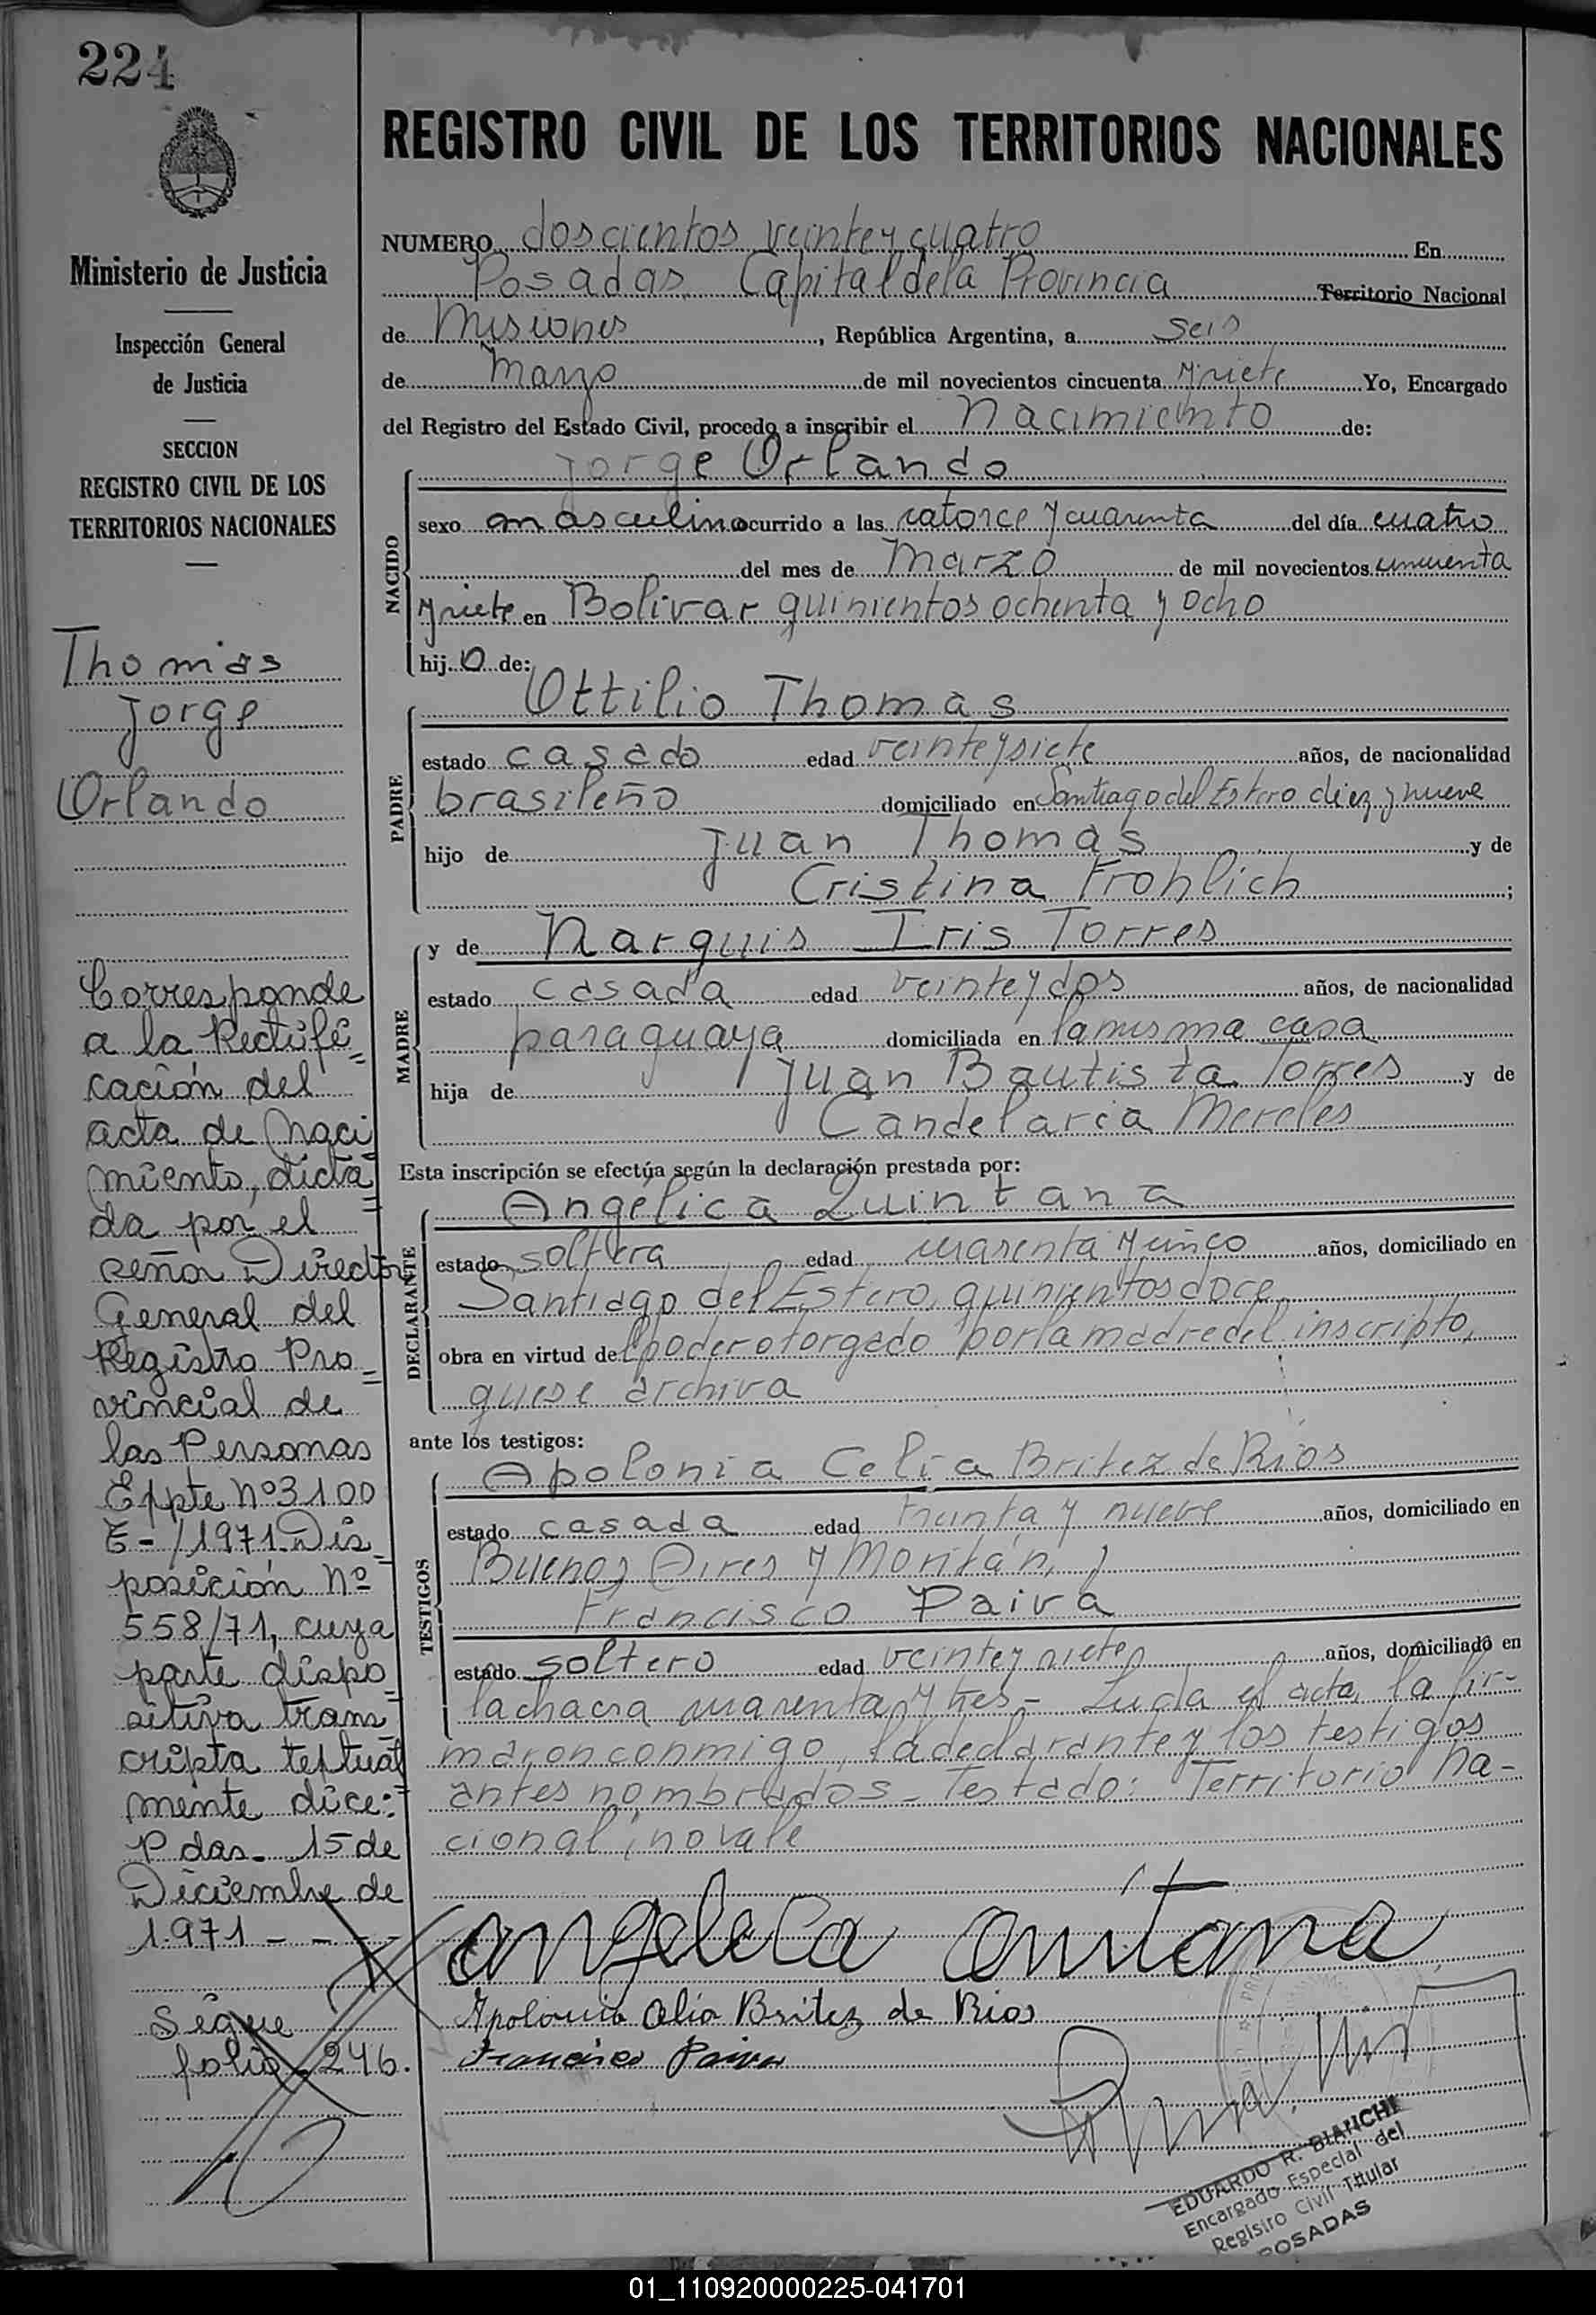 224
Ministerio de Justicia
Inspección General
de Justicia
SECCION
REGISTRO CIVIL DE LOS
TERRITORIOS NACIONALES
Thomas
Jorge
Orlando
Corresponde
a la Rectifi=
cación del
acta de Naci
miento, dicta=
da por el
señor Director
General del
Registro Pro=
vincial de
las Personas
Expte Nº 3100
E-/1971. Dis=
posición Nº
558/71, cuya
parte dispo=
sitiva trans=
cripta textual=
mente dice:
Pdas. 15 de
Diciembre de
1971 - -
Sigue
folio 246.
REGISTRO CIVIL DE LOS TERRITORIOS NACIONALES
NUMERO doscientos veinte y cuatro En
Posadas, Capital de la Provincia Territorio Nacional
de Misiones, República Argentina, a seis
de Marzo de mil novecientos cincuenta y siete Yo, Encargado
del Registro del Estado Civil, procedo a inscribir el Nacimiento de:
NACIDO
Jorge Orlando
sexo masculino ocurrido a las catorce y cuarenta del día cuatro
del mes de Marzo de mil novecientos cincuenta
y siete en Bolivar quinientos ochenta y ocho
hijo de:
PADRE
Ottilio Thomas
estado casado edad veinte y siete años, de nacionalidad
brasileño domiciliado en Santiago del Estero diez y nueve
hijo de Juan Thomas y de
Cristina Frohlich;
MADRE
y de Narquis Iris Torres
estado casada edad veinte y dos años, de nacionalidad
paraguaya domiciliada en la misma casa
hija de Juan Bautista Torres y de
Candelaria Mereles
Esta inscripción se efectúa según la declaración prestada por:
DECLARANTE
Angélica Quintana
estado soltera edad cuarenta y cinco años, domiciliado en
Santiago del Estero, quinientos doce
obra en virtud del poder otorgado por la madre del inscripto,
que se archiva
ante los testigos:
TESTIGOS
Apolonia Celia Britez de Ríos
estado casada edad treinta y nueve años, domiciliado en
Buenos Aires y
Francisco Paiva
estado soltero edad veinte y siete años, domiciliado en
la chacra cuarenta y tres - Leida el acta, la fir-
maron conmigo, la declarante y los testigos
antes nombrados - Testado: Territorio Na-
cional, no vale
Angelica Quintana
Apolonia Celia Britez de Rios
Francisco Paiva
EDUARDO R. BIANCHI
Encargado Especial del
Registro Civil Titular
POSADAS
01_110920000225-041701